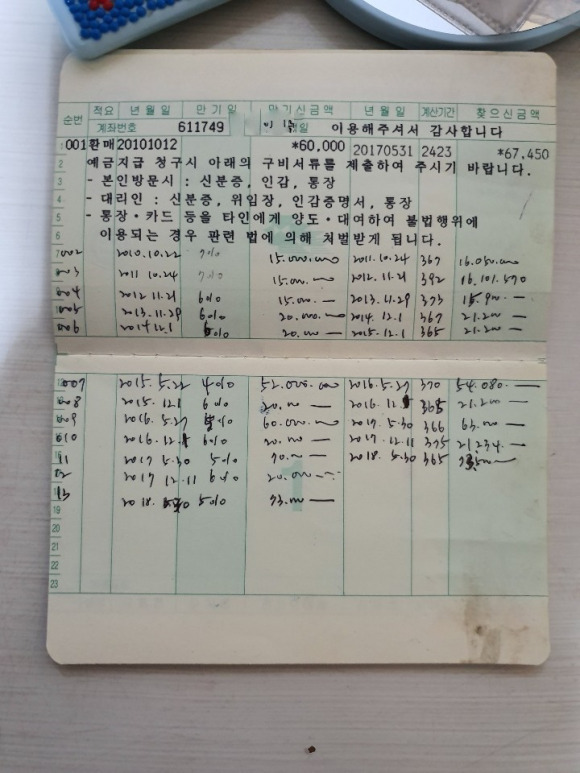 순번 적요 년월일 만기일 만기신금액 년월일 계산기간 찾으신금액
계좌번호 611749 이용해주셔서 감사합니다
1 001 환매 20101012 *60,000 20170531 2423 *67,450
2 예금지급 청구시 아래의 구비서류를 제출하여 주시기 바랍니다.
3 - 본인방문시 : 신분증, 인감, 통장
4 - 대리인 : 신분증, 위임장, 인감증명서, 통장
5 - 통장·카드 등을 타인에게 양도·대여하여 불법행위에
6 이용되는 경우 관련 법에 의해 처벌받게 됩니다.
7 002 2010.10.22 7% 15.000.000 2011.10.24 367 16.050.000
003 2011.10.24 7% 15.000 2012.11.21 392 16.101.570
004 2012.11.21 6% 15.000 — 2013.11.29 373 15.900. —
005 2013.11.29 6% 20.000. 2014.12.1 367 21.200 —
006 2014.12.1 6% 20.000 — 2015.12.1 365 21.200 —
007 2015.5.22 4% 52.000.000 2016.5.27 370 54.080. —
008 2015.12.1 6% 20.000 — 2016.12.1 365 21.200 —
009 2016.5.27 5% 60.000.000 2017.5.30 366 63.000 —
010 2016.12.1 6% 20.000 — 2017.12.11 375 21.234. —
11 2017.5.30 5% 70.000 — 2018.5.30 365
12 2017.12.11 6% 20.000 —
13 2018. 5% 73.000 —
19
20
21
22
23